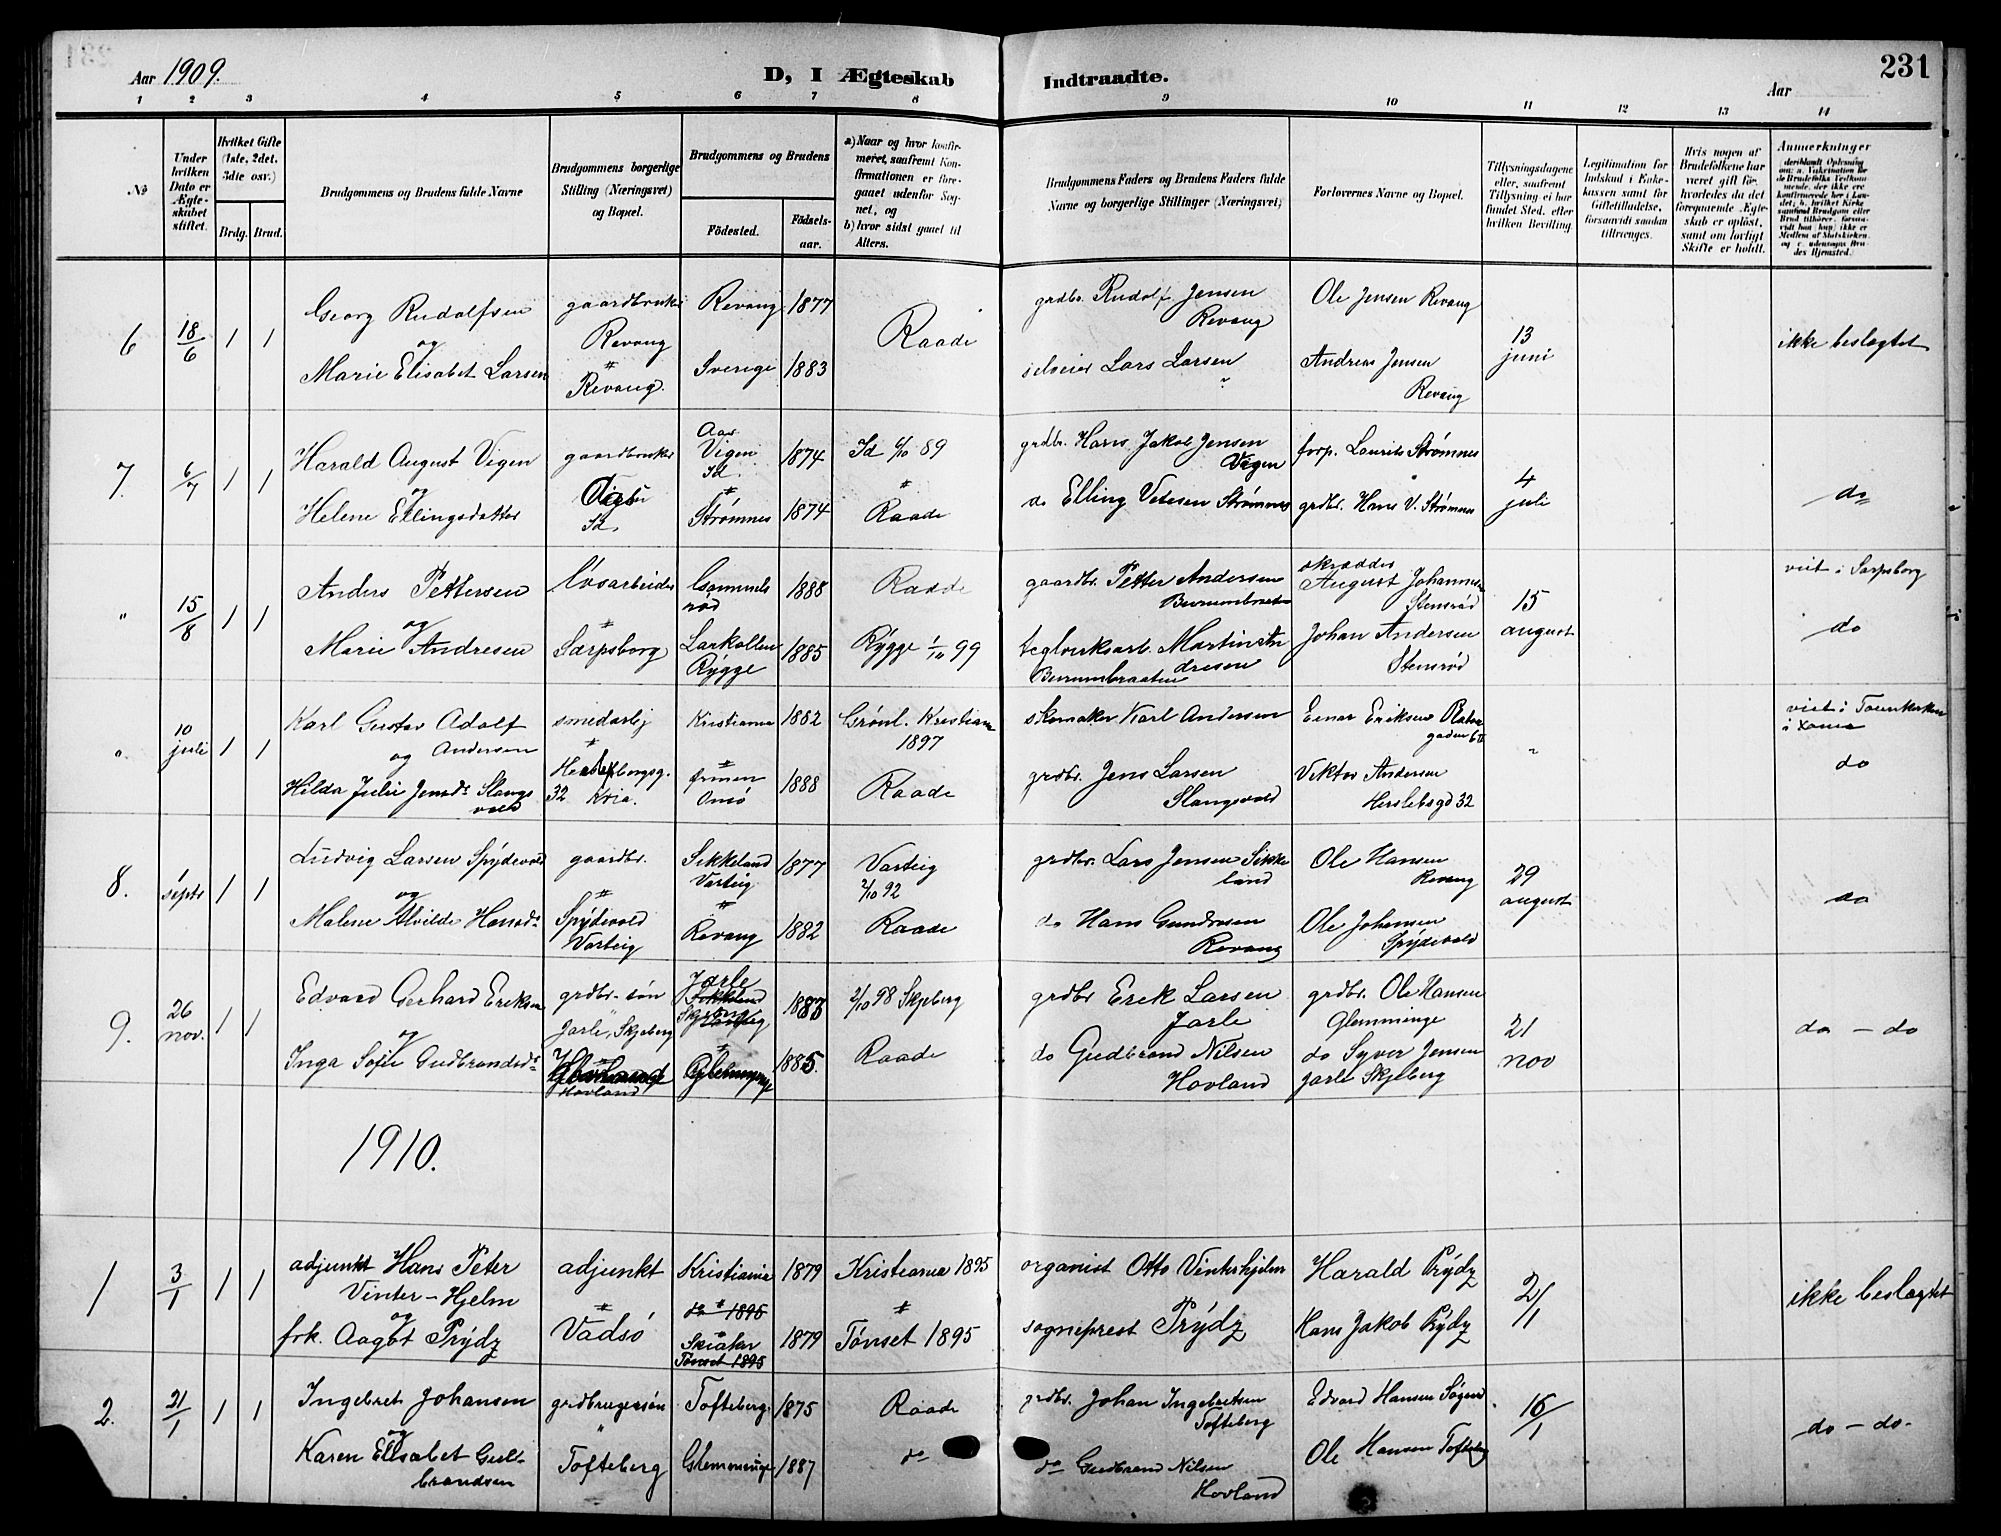 Aar 1909.
D, I Ægteskab
Indtraadte.
Aar
231
1 2 3 4 5 6 7 8 9 10 11 12 13 14
No
Under hvilken Dato er Ægteskabet stiftet.
Hvilket Gifte (1ste, 2det, 3die osv.)
Brdg. Brud.
Brudgommens og Brudens fulde Navne
Brudgommens borgerlige Stilling (Næringsvei) og Bopæl.
Brudgommens og Brudens
Födested.
Födselsaar.
a) Naar og hvor konfirmeret, saafremt Konfirmationen er foregaaet udenfor Sognet, og
b) hvor sidst gaaet til Alters.
Brudgommens Faders og Brudens Faders fulde Navne og borgerlige Stillinger (Næringsvei)
Forlovernes Navne og Bopæl.
Tillysningsdagene eller, saafremt Tillysning ei har fundet Sted, efter hvilken Bevilling.
Legitimation for Indskud i Enkekassen samt for Giftetilladelse, forsaavidt saadan tiltrænges.
Hvis nogen af Brudefolkene har været gift för, hvorledes da det foregaaende Ægteskab er oplöst, samt om lovligt Skifte er holdt.
Anmærkninger
6
18/6
1 1
Georg Rudolfsen
og
Marie Elisabet Larsen
gaardbruker
Revaug
"
Revaug.
Revaug 1877
Sverige 1883
Raade
grdbr. Rudolf Jensen
Revaug
selveier Lars Larsen
"
Ole Jensen Revaug
Andreas Jensen
Revaug
13
juni
ikke beslegtet
7.
6/7
1 1
Harald August Vigen
og
Helene Ellingsdatter
gaardbruker
Id.
Vigen
Id.
"
Strømnes
1874
1874
Id 6/10 89
"
Raade
grdbr. Hans Jakob Jensen
Vigen
do Elling Strømnes
forp. Laurits Strømnes
grdbr. Hans V. Strømnes
4
juli
do
"
15/8
1 1
Anders Pettersen
og
Marie Andresen
"
Sarpsborg
Gammels
rød
Larkollen
Rygge
1888
1885
Raade
Rygge 1/10 99
gaardbr. Petter Andersen
teglverksarb. Martin An
dresen
skrædder
August Johannesen
Stensrød
Johan Andersen
Stensrød
15
august
viet i Sarpsborg
do
"
10
juli
1 1
Karl Gustav Adolf
og Andersen
Hilda Julie Jensdr Slangs
vold
smedarb
"
32 Kria.
Kristiania 1882
"
Onsø
1888
Grønl. Kristiania
1897
Raade
skomaker Karl Andersen
grdbr. Jens Larsen
Slangsvold
Einar Eriksen
Viktor Andersen
Herslebsgd 32
"
viet i
do
8.
1
septr
1 1
Ludvig Larsen Spydevold
og
Malene Alvilde Hansdr
gaardbr.
"
Spydevold
Varteig
Sikkeland
Varteig
"
Revaug
1877
1882
Varteig
2/10 92
Raade
grdbr. Lars Jensen Sikke
land
do Hans Gundersen
Revaug
Ole Hansen
Revaug
Ole Johansen
Spydevold
29
august
do
9.
26
nov.
1 1
Edvard Gerhard Eriksen
og
Inga Sofie Gudbrandsdr
grdbr. søn
Jarle, Skjeberg
Hovland
Jarle
Skjeberg
"
Glemminge
1883
1885.
2/10 98 Skjeberg
Raade
grdbr Erik Larsen
Jarle
do Gudbrand Nilsen
Hovland
grdbr. Ole Hansen
Glemminge
do Syver Jensen
Jarle Skjeberg
21
nov
do - do
1910.
1
3/1
1 1
adjunkt Hans Peter
Vinter-Hjelm
og
frk. Aagot Prydz
adjunkt
"
Vadsø
Kristiania
do 1895
Skiaker
Tønset 1895
1879
1879
Kristiania 1895
"
Tønset 1895
organist Otto Vinterhjelm
sogneprest Prydz
Harald Prydz
Hans Jakob Prydz
2/1
ikke beslegtet
2.
21/1
1 1
Ingebret Johansen
og
Karen Elisabet Gul-
brandsen
grdbrugersøn
"
Tofteberg
Tofteberg
Glemminge
1875
1887
Raade
do
grdbr. Johan Ingebretsen
Tofteberg
do Gudbrand Nilsen
Hovland
Edvard Hansen
Ole Hansen Tofteberg
16/1
do - do-